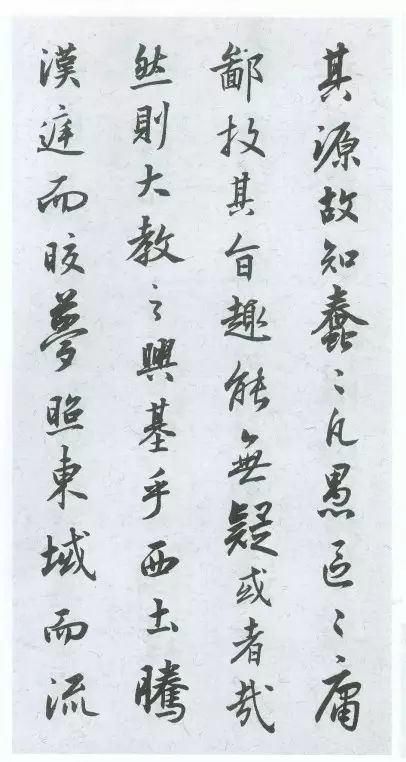 其源故知蠢〻凡愚區〻庸
鄙投其旨趣能無疑或者哉
然則大教之興基乎西土騰
漢庭而皎夢照東域而流